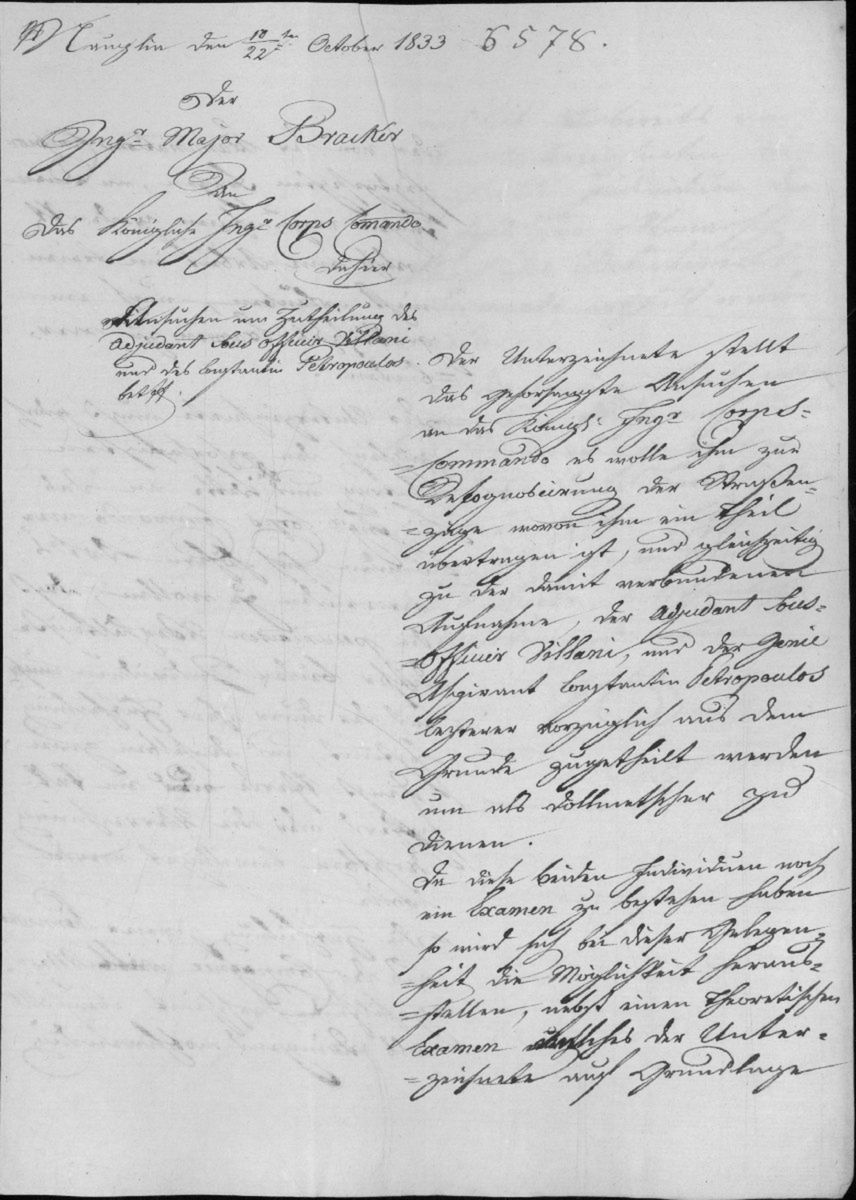 Nauplia den 10/22ten October 1833 6578.
Der
Ingr Major Bracker
An
Das Königliche Ingr Corps Comando
dahier
Ansuchen um Zutheilung des
Adjudant sous officier Villani
und des Constantin Petropoulos.
betff.
Der Unterzeichnete stellt
das gehorsamste Ansuchen
an das Königl: Ingr Corps-
=Commando es wolle ihm zur
Rekognoscirung der Straßen-
=züge wovon ihm ein Theil
übertragen ist, und gleichzeitig
zu der damit verbundenen
Aufnahme, der Adjudant sous-
=officier Villani, und der Genie
Aspirant Constantin Petropoulos
lezterer vorzüglich aus dem
Grunde zugetheilt werden
um als Dollmetscher zu
dienen.
Da diese beiden Individuen noch
ein Examen zu bestehen haben
so wird sich bei dieser Gelegen-
=heit die Möglichkeit heraus-
=stellen, nebst einen theoretischen
Examen welches der Unter-
=zeichnete auf Grundlage